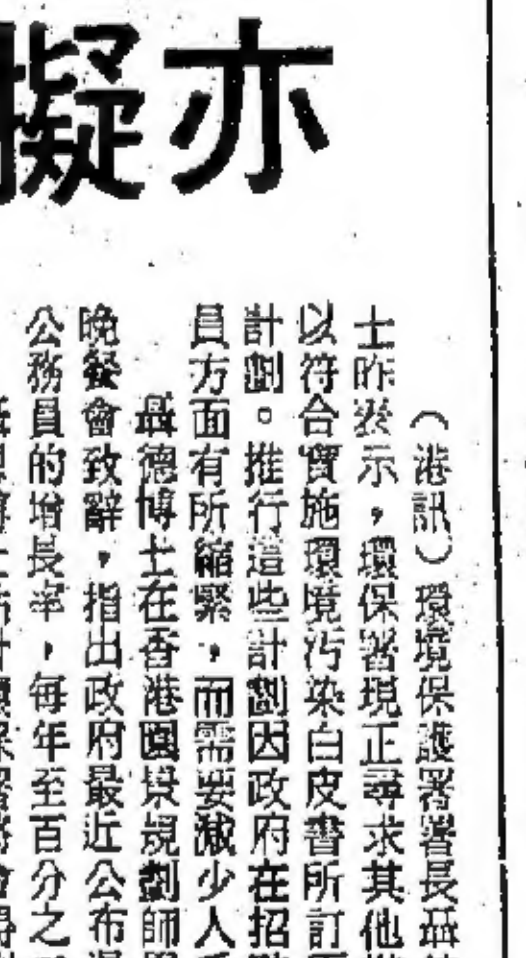 亦擬
（港訊）環境保護署署長聶
士昨表示，環保署現正尋求其他
以符合實施環境污染白皮書所訂
計劃。推行這些計劃因政府在招
員方面有所縮緊，而需要減少人
聶德博士在香港園景規劃師
晚餐會致辭，指出政府最近公布
公務員的增長率，每年至百分之